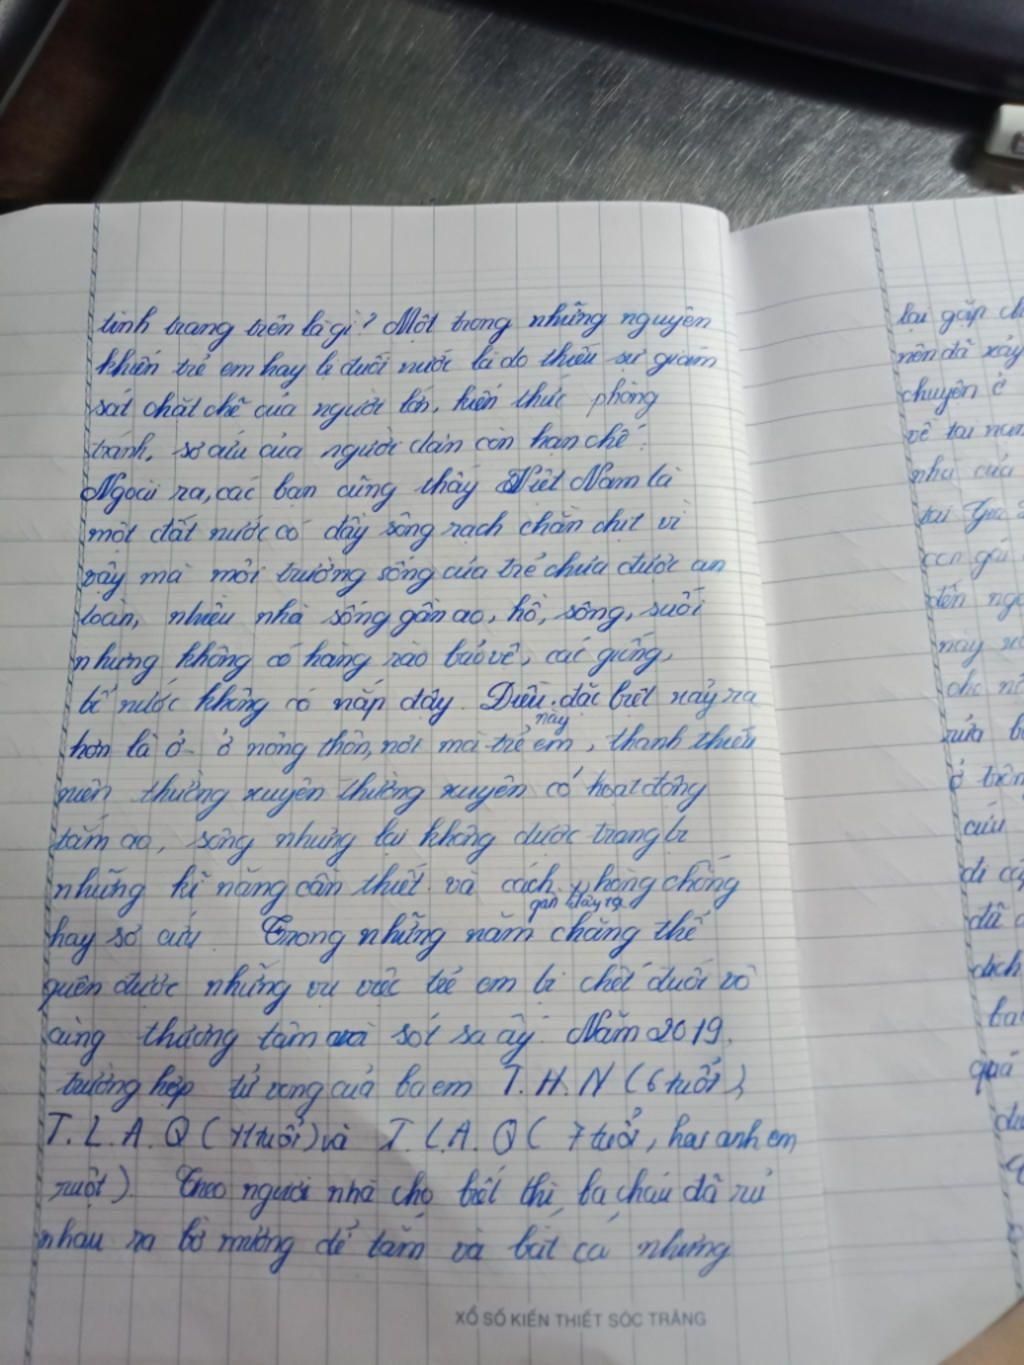 tình trạng trên là gì? Một trong những nguyên
khiến trẻ em hay bị đuối nước là do thiếu sự giám
sát chặt chẽ của người lớn, kiến thức phòng
tránh, sơ cứu của người dân còn hạn chế.
Ngoài ra, các bạn cũng thấy Việt Nam là
một đất nước có dầy sông rạch chằn chịt vì
vậy mà môi trường sống của trẻ chưa được an
toàn, nhiều nhà sống gần ao, hồ, sông, suối
nhưng không có hàng rào bảo vệ, các giếng,
bể nước không có nắp đậy. Điều này đặc biệt xảy ra
hơn là ở ở nông thôn, nơi mà trẻ em, thanh thiếu
niên thường xuyên thường xuyên có hoạt động
tắm ao, sông nhưng lại không được trang bị
những kĩ năng cần thiết và cách phòng chống
hay sơ cứu. Trong những năm gần đây ta chẳng thể
quên được những vụ việc trẻ em bị chết đuối vô
cùng thương tâm và sót sa ấy. Năm 2019,
trường hợp tử vong của ba em T.H.N (6 tuổi),
T.L.A.Q (11 tuổi) và T.L.A.Q ( 7 tuổi, hai anh em
ruột). Theo người nhà cho biết thì, ba cháu đã rủ
nhau ra bờ mương để tắm và bắt cá nhưng
XỔ SỐ KIẾN THIẾT SÓC TRĂNG
lại gặp
nên đã xảy
chuyện ở
về tai nạn
nhà của
tại
con gái
đến
này
cho
rửa
ở trên
cứu
đi
đã
dịch
quá